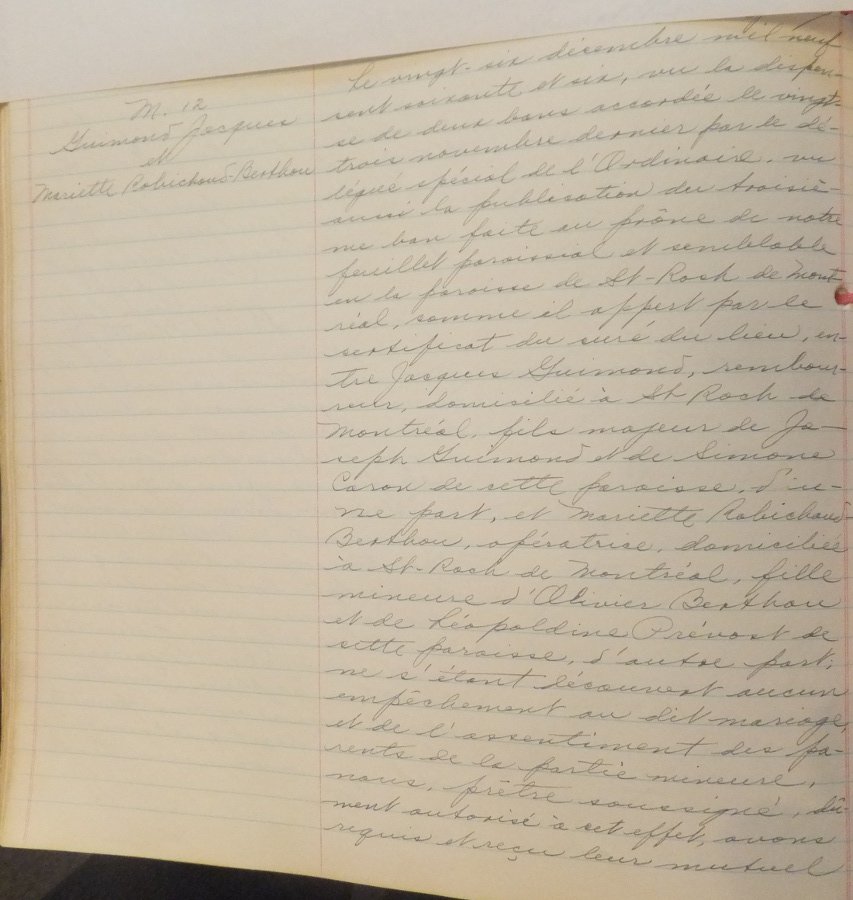 M. 12
Guimond Jacques
et
Mariette Robichaud-Berthou
Le vingt-six décembre mil neuf
cent soixante et six, vu la dispen-
se de deux bans accordée le vingt-
trois novembre dernier par le dé-
légué spécial de l'Ordinaire, vu
aussi la publication du troisiè-
me ban faite au prône de notre
feuillet paroissial et semblable
en la paroisse de St-Roch de Mont-
réal, comme il appert par le
certificat du curé du lieu, en-
tre Jacques Guimond, rembour-
reur, domicilié à St-Roch de
Montréal, fils majeur de Jo-
seph Guimond et de Simone
Caron de cette paroisse, d'u-
ne part, et Mariette Robichaud-
Berthou, opératrice, domiciliée
à St-Roch de Montréal, fille
mineure d'Olivier Berthou
et de Léopoldine Prévost de
cette paroisse, d'autre part;
ne s'étant découvert aucun
empêchement au dit mariage,
et de l'assentiment des pa-
rents de la partie mineure,
nous, prêtre soussigné, dû-
ment autorisé à cet effet, avons
requis et reçu leur mutuel